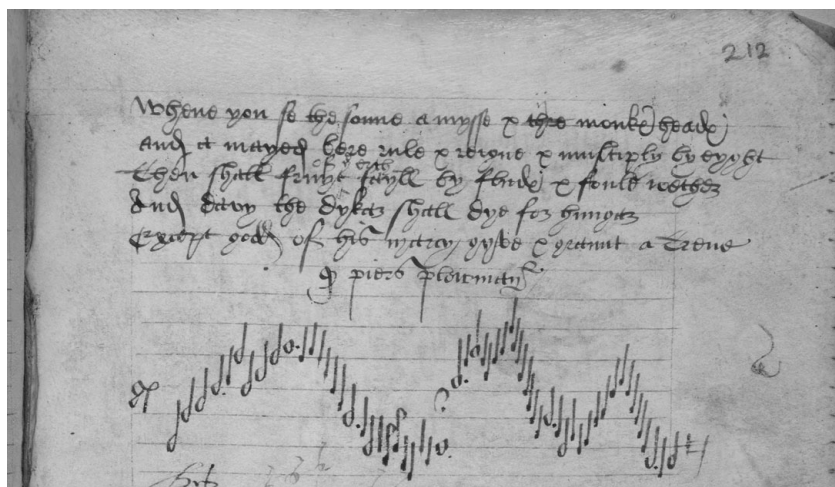 212
Whene you se the sonne amysse & thre monkes heades
And a mayed bere rule & reigne & multiply by eyght
Then shall fruyt of yerth fayll by fludes & foule wether
And davy the dykar shall dye for hungar
Except god of his marcy gyve & graunt a Treue
piers plowman